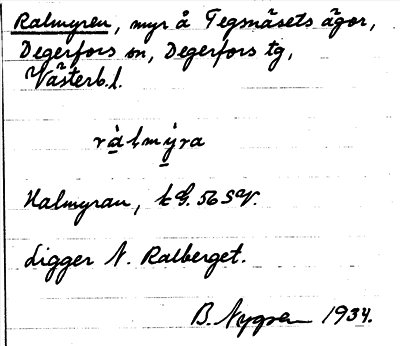 Ralmyren, myr å Tegsnäsets ägor,
Degerfors sn, Degerfors tg,
Västerb.l.
ràlmýra
Halmyran, k G. 56 SV.
Ligger N. Ralberget.
B. Nygren 1934.